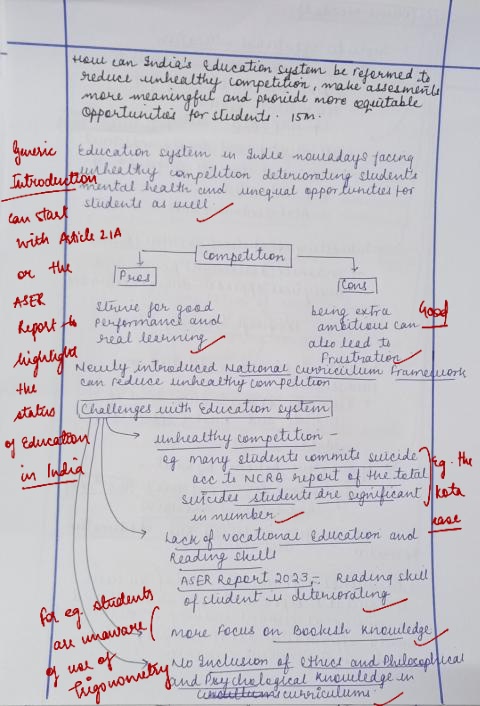 How can India's Education system be reformed to
reduce unhealthy competition, make assesments
more meaningful and provide more equitable
Opportunities for students. 15M.
Generic
Introduction
can start
with Article 21A
or the
ASER
Report to
highlight
the
status
of Education
in India
Education system in India nowadays facing
unhealthy competition deteriorating student's
mental health and unequal opportunities for
students as well.
Competition
Pros
Cons
Strive for good
performance and
real learning
being extra
ambitious can
also lead to
Frustration
Good
Newly introduced National curriculum Framework
can reduce unhealthy competition
Challenges with Education system
unhealthy competition -
eg many students commits suicide
acc to NCRB report of the total
suicides students are significant
in number.
Eg. the
Kota
case
Lack of vocational Education and
Reading skills
ASER Report 2023,- Reading skill
of student is deteriorating
More Focus on Bookish Knowledge
For eg. students
are unaware
of use of
Trigonometry
No Inclusion of Ethics and Philosophical
and Psychological Knowledge in
curriculums